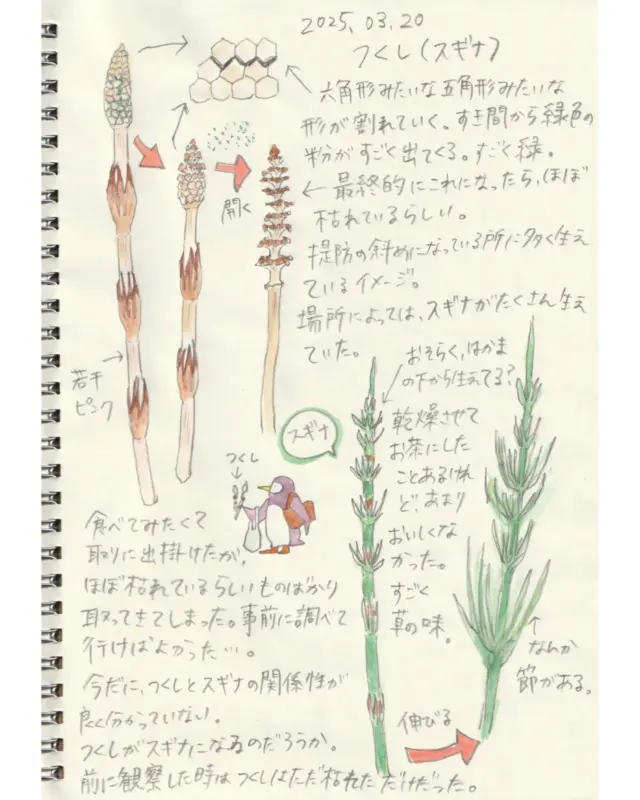 2025.03.20
つくし(スギナ)
六角形みたいな五角形みたいな
形が割れていく。すき間から緑色の
粉がすごく出てくる。すごく緑。
開く
← 最終的にこれになったら、ほぼ
枯れているらしい。
堤防の斜めになっている所に多く生え
ているイメージ。
場所によっては、スギナがたくさん生え
ていた。
若干
ピンク
スギナ
つくし
おそらく、はかま
の下から生えてる?
乾燥させて
お茶にした
ことあるけれ
ど、あまり
おいしくな
かった。
すごく
草の味。
なんか
節がある。
伸びる
食べてみたくて
取りに出掛けたが、
ほぼ枯れているらしいものばかり
取ってきてしまった。事前に調べて
行けばよかった…。
今だに、つくしとスギナの関係性が
良く分かっていない。
つくしがスギナになるのだろうか。
前に観察した時はつくしはただ枯れただけだった。